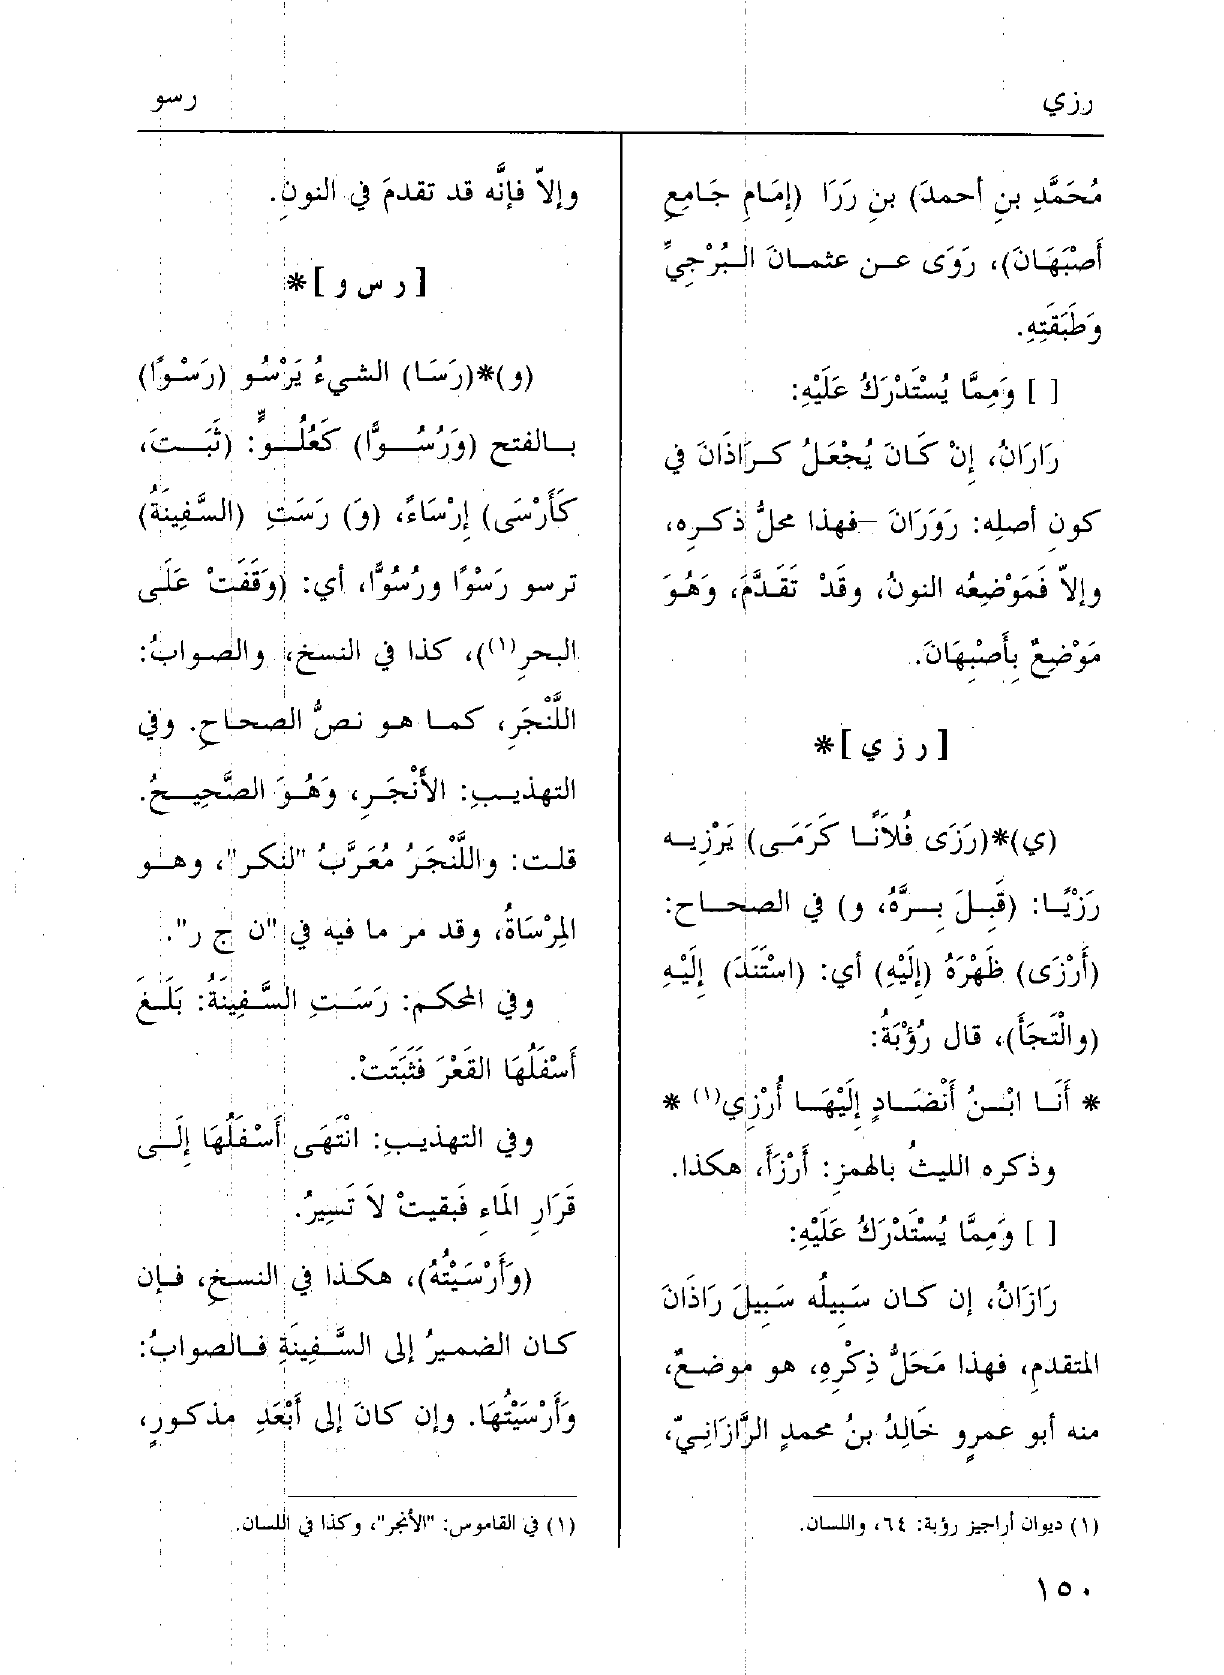 رزي
رسو
مُحَمَّدِ بنِ أحمدَ) بنِ رَرَا (إِمَامِ جَامِعِ
أَصْبَهَانَ)، رَوَى عـن عثمـانَ الـبُرْجِيِّ
وَطَبَقَتِهِ.
[ ] وَمِمَّا يُسْتَدْرَكُ عَلَيْهِ:
رَارَانُ، إِنْ كَـانَ يُجْعَـلُ كـرَاذَانَ في
كونِ أصلِه: رَوَرَانَ –فهذا محلُّ ذكـرِه،
وإلاّ فَمَوْضِعُه النونُ، وقَدْ تَقَـدَّمَ، وَهُـوَ
مَوْضِعٌ بِأَصْبِهَانَ.
[ر ز ي]*
(ي)*(رَزَى فُلاَنًا كَرَمَى) يَرْزِيـه
رَزْيًـا: (قَبِـلَ بِـرَّهُ، و) في الصحـاحِ:
(أَرْزَى) ظَهْرَهُ (إِلَيْهِ) أي: (اسْتَنَدَ) إِلَيْهِ
(والْتَجَأَ)، قال رُؤْبَةُ:
* أَنَـا ابْـنُ أَنْضَـادٍ إِلَيْهَـا أُرْزِي(١) *
وذكره الليثُ بالهمزِ: أَرْزَأَ، هكذا.
[ ] وَمِمَّا يُسْتَدْرَكُ عَلَيْهِ:
رَازَانُ، إن كـان سَبِيلُه سَبِيلَ رَاذَانَ
المتقدمِ، فهذا مَحَلُّ ذِكْرِهِ، هو موضـعٌ،
منه أبو عمرٍو خَالِدُ بنُ محمدٍ الرَّازَانِيّ،
(١) ديوان أراجيز رؤبة: ٦٤، واللسان.
وإلاّ فإنَّه قد تقدمَ في النونِ.
[ر س و]*
(و)*(رَسَـا) الشيءُ يَرْسُو (رَسْـوًا)
بـالفتح (وَرُسُـوًّا) كَعُلُـوٍّ: (ثَبَـتَ،
كَأَرْسَى) إِرْسَاءً، (وَ) رَسَتِ (السَّفِينَةُ)
ترسو رَسْوًا ورُسُوًّا، أي: (وَقَفَتْ عَلَى
البحرِ(١))، كذا في النسخِ، والصـوابُ:
اللَّنْجَرِ، كمـا هـو نـصُّ الصحـاحِ. وفي
التهذيـبِ: الأَنْجَـرِ، وَهُـوَ الصَّحِيـحُ.
قلـت: واللَّنْجَرُ مُعَرَّبُ "لنكر"، وهـو
المِرْسَاةُ، وقد مر ما فيه في "ن ج ر".
وفي المحكمِ: رَسَـتِ السَّفِينَةُ: بَلَـغَ
أَسْفَلُهَا القَعْرَ فَثَبَتَتْ.
وفي التهذيبِ: انْتَهَى أَسْفَلُهَا إِلَـى
قَرَارِ المَاءِ فَبقيتْ لاَ تَسِيرُ.
(وَأَرْسَيْتُهُ)، هكـذا في النسـخِ، فـإن
كان الضميرُ إلى السَّـفِينَةِ فـالصوابُ:
وَأَرْسَيْتُهَا. وإن كانَ إلى أَبْعَدِ مذكـورٍ،
(١) في القاموس: "الأنجر"، وكذا في اللسان.
١٥٠